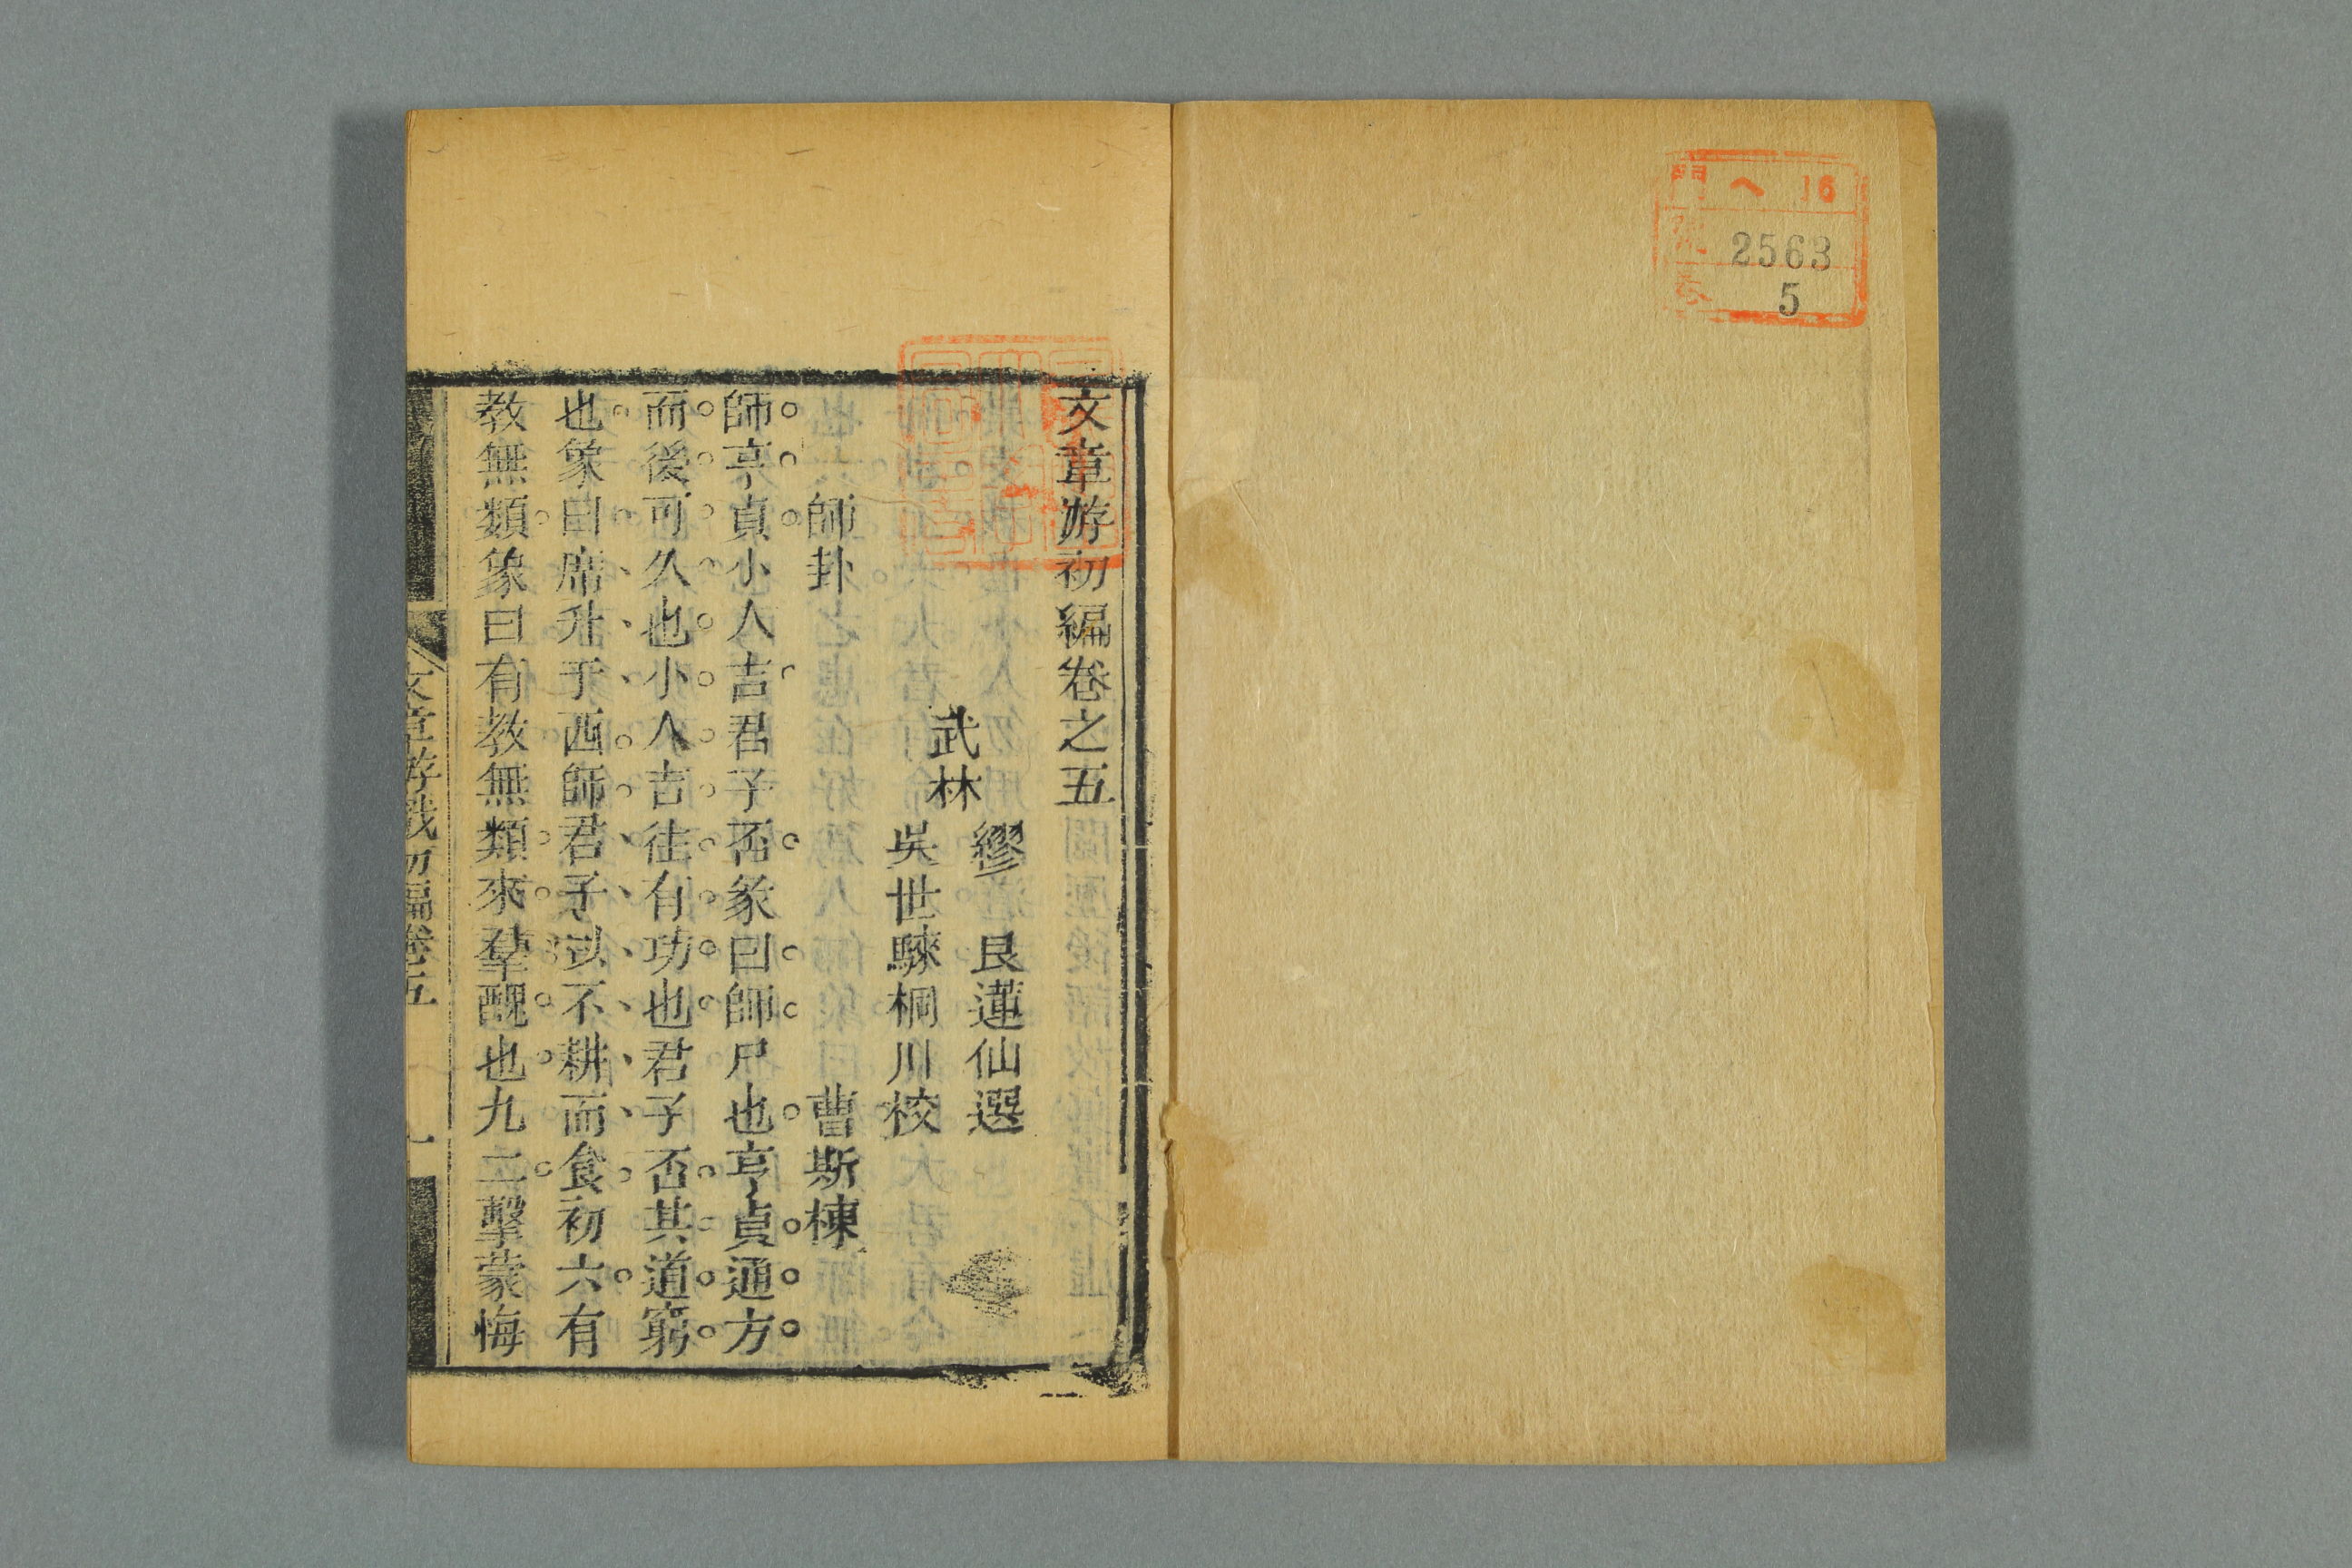 門 ヘ 16
號 2563
卷 5
文章游初編卷之五
武林
繆 艮蓮仙選
吳世騋桐川校
師卦 曹斯棟
師亨貞小人吉君子否彖曰師尸也亨貞通方
而後可久也小人吉徒有功也君子否其道窮
也象曰席升于西師君子以不耕而食初六有
教無類象曰有教無類來羣醜也九二擊蒙悔
文章游戲初編卷五 一